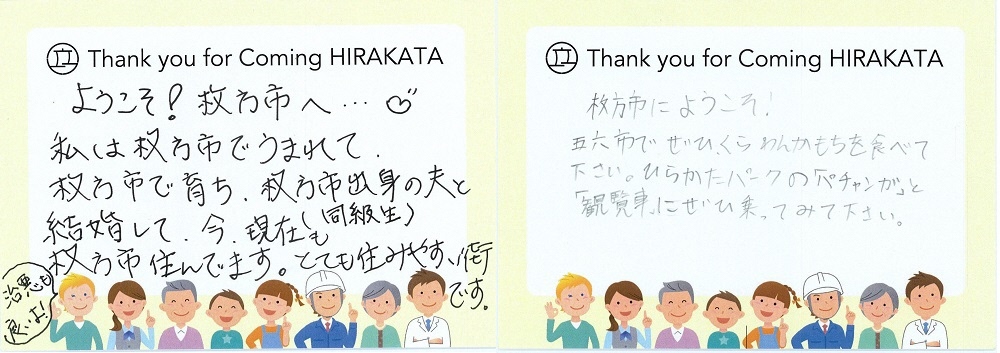 Thank you for Coming HIRAKATA
ようこそ!枚方市へ…
私は枚方市でうまれて、
枚方市で育ち、枚方市出身の夫と
(同級生)
結婚して、今、現在も
枚方市住んでます。とても住みやすい街
です。
治悪も
良いよ!
Thank you for Coming HIRAKATA
枚方市にようこそ!
五六市でぜひ、くらわんかもちを食べて
下さい。ひらかたパークの「ペチャンガ」と
「観覧車」にぜひ乗ってみて下さい。